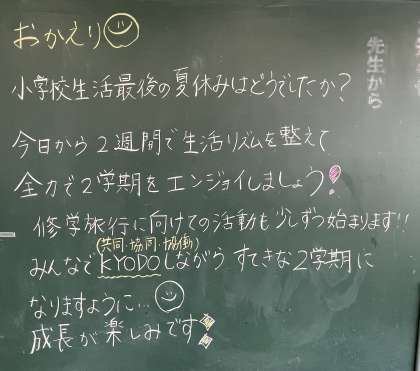 おかえり
先生から
小学校生活最後の夏休みはどうでしたか?
今日から2週間で生活リズムを整えて
全力で2学期をエンジョイしましょう!
修学旅行に向けての活動も少しずつ始まります!!
(共同・協同・協働)
みんなでKYODOしながら すてきな2学期に
なりますように...
成長が楽しみです